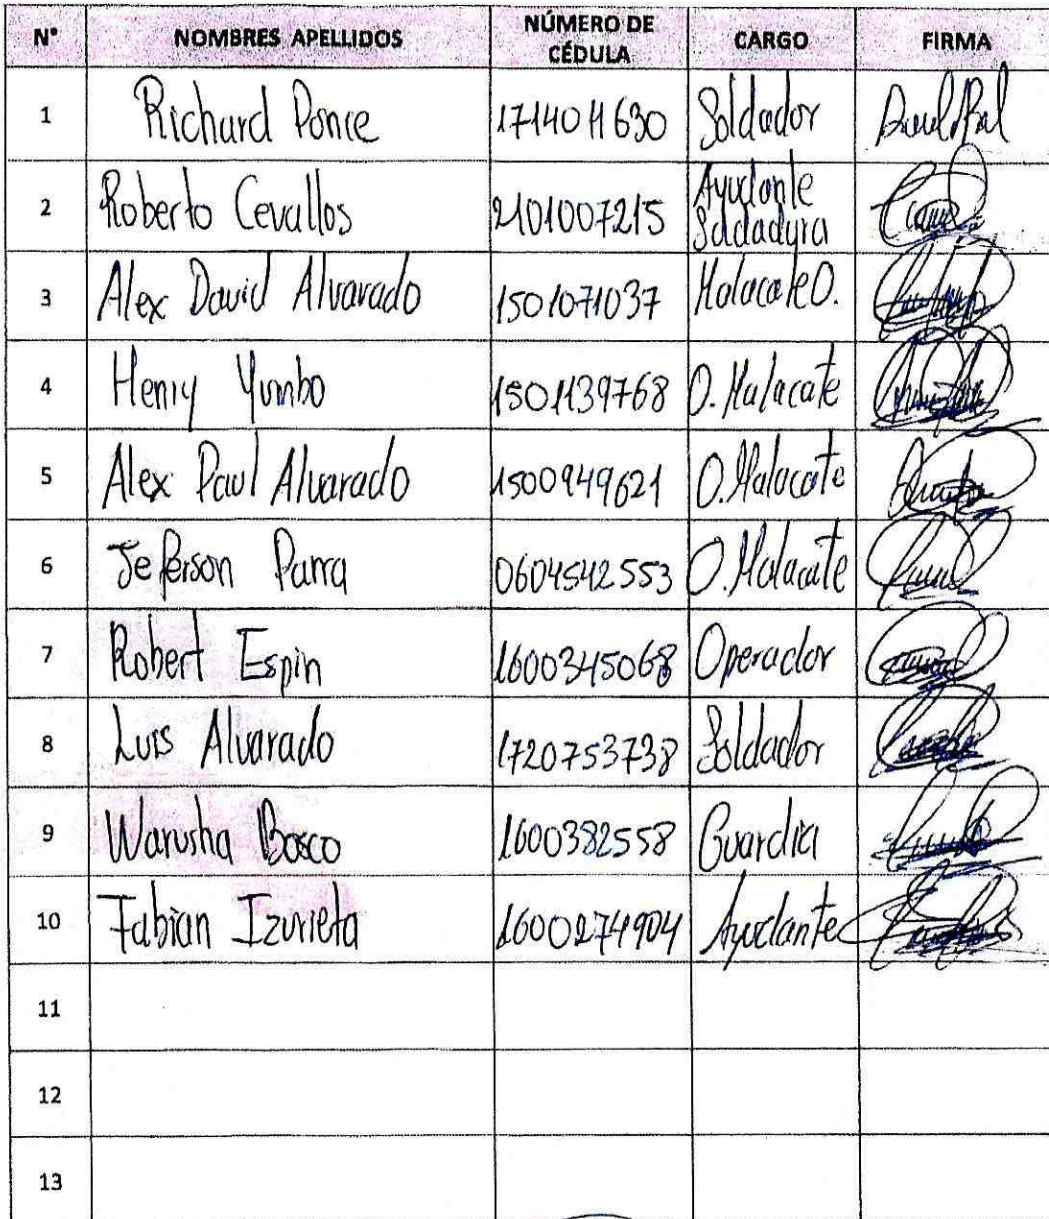 N° NOMBRES APELLIDOS NÚMERO DE CÉDULA CARGO FIRMA
1 Richard Ponce 1714011630 Soldador
2 Roberto Cevallos 2101007215 Ayudante Soldadura
3 Alex David Alvarado 1501071037 Malacate O.
4 Henry Yumbo 1501139768 O. Malacate
5 Alex Paul Alvarado 1500949621 O. Malacate
6 Jeferson Parra 0604542553 O. Malacate
7 Robert Espin 1600345068 Operador
8 Luis Alvarado 1720753738 Soldador
9 Warusha Bosco 1600382558 Guardia
10 Fabian Izurieta 1600274904 Ayudante
11
12
13